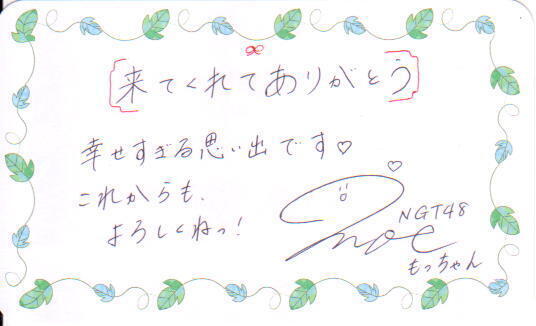 [来てくれてありがとう]
幸せすぎる思い出です♡
これからも、
よろしくねっ!
NGT48
もっちゃん